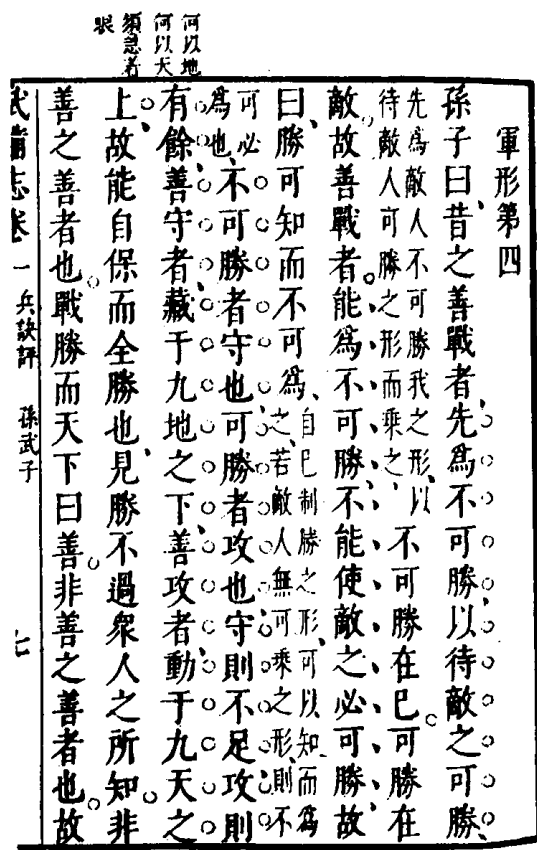 何以地
何以天
須急着
眼
軍形第四
孫子曰、昔之善戰者、先爲不可勝、以待敵之可勝、
先爲敵人不可勝我之形、以
待敵人可勝之形而乘之、
不可勝在巳。可勝在
敵。故善戰者。能爲不可勝、不能使敵之必可勝、故
曰、勝可知而不可爲、
自巳制勝之形、可以知而爲
之、若敵人無可乘之形、則不
可必
爲也、
不可勝者守也、可勝者攻也、守則不足、攻則
有餘、善守者、藏于九地之下、善攻者、動于九天之
上、故能自保而全勝也、見勝不過衆人之所知、非
善之善者也。戰勝而天下曰善。非善之善者也。故
武備志卷一 兵訣評 孫武子 七